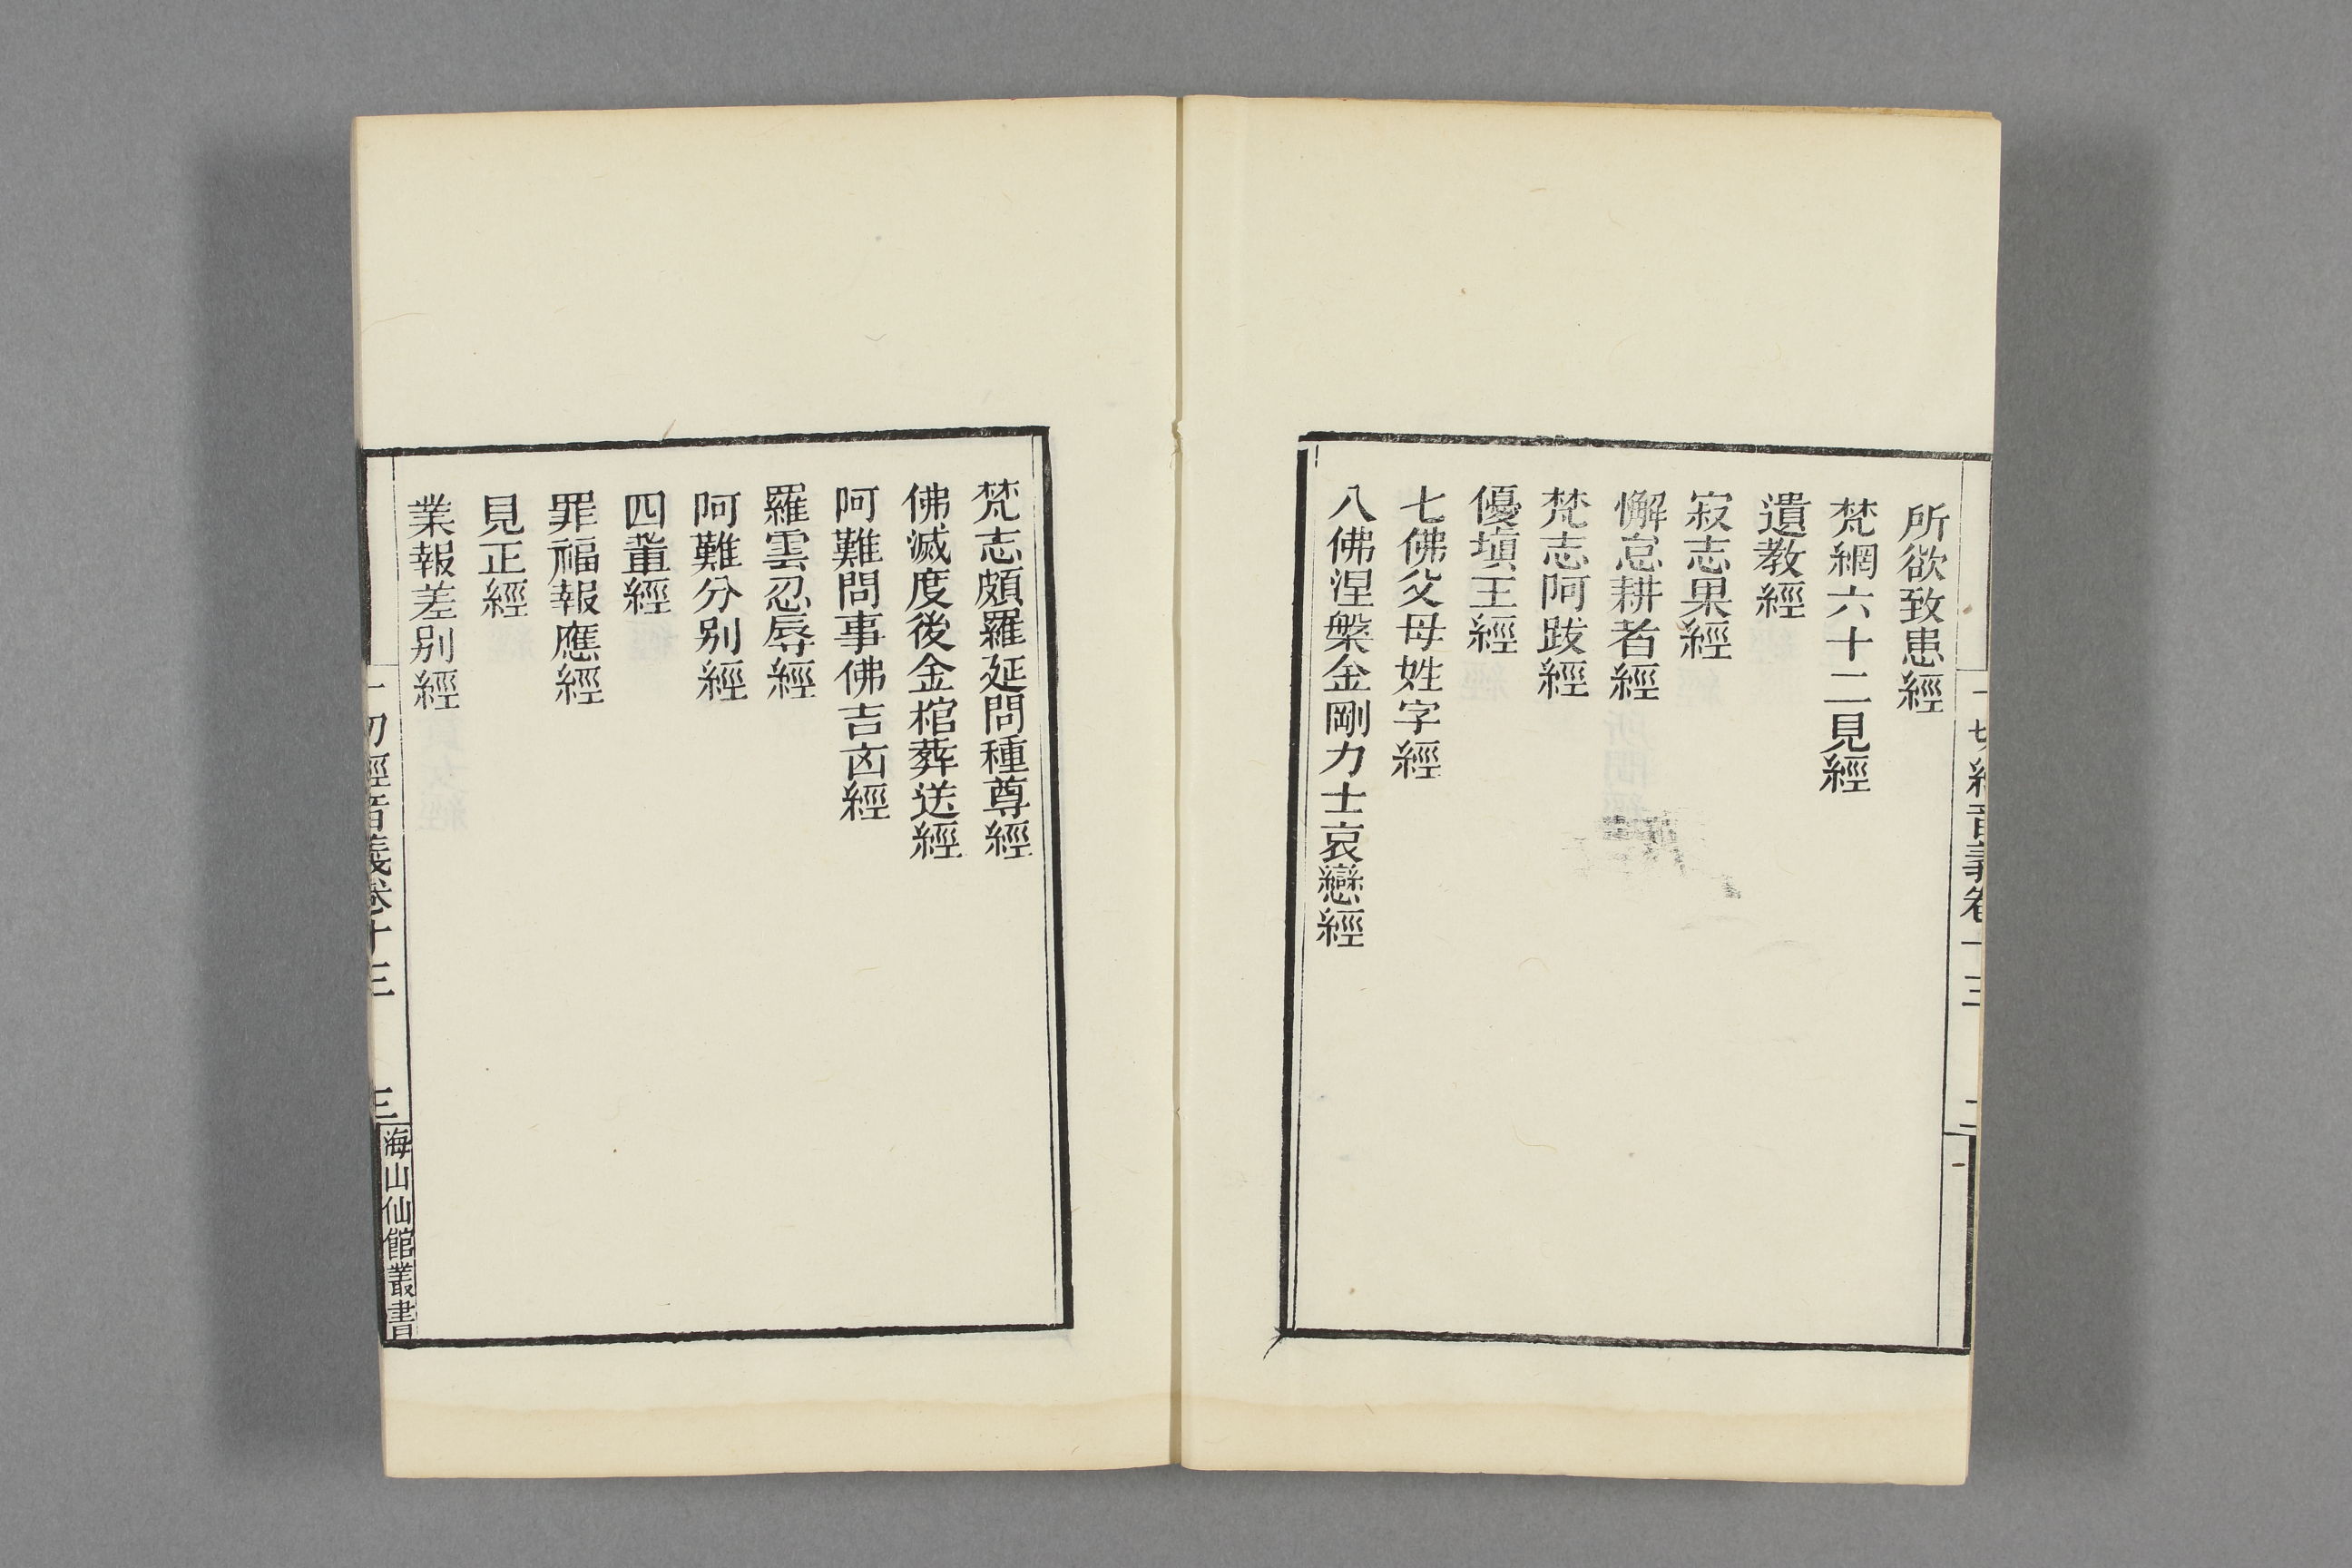 一切經音義卷十三 二
所欲致患經
梵網六十二見經
遺教經
寂志果經
懈怠耕者經
梵志阿跋經
優塡王經
七佛父母姓字經
八佛涅槃金剛力士哀戀經
梵志頗羅延問種尊經
佛滅度後金棺葬送經
阿難問事佛吉凶經
羅雲忍辱經
阿難分别經
四輩經
罪福報應經
見正經
業報差别經
一切經音義卷十三 三
海山仙館叢書